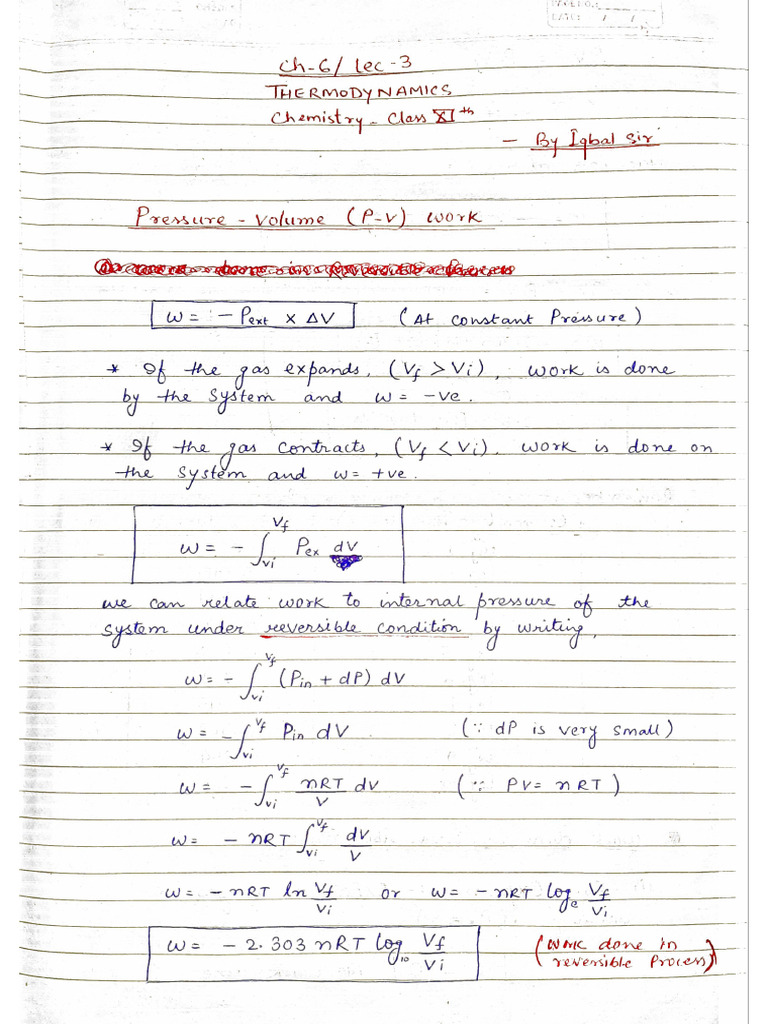 DATE: / /
Ch-6/ Lec-3
THERMODYNAMICS
Chemistry - Class XI th
- By Iqbal Sir
Pressure - Volume (P-V) work
w = - Pext x ΔV (At constant Pressure)
* If the gas expands, (Vf > Vi), work is done
by the system and w = -ve.
* If the gas contracts, (Vf < Vi). work is done on
the system and w = +ve.
w = - ∫Vi^Vf Pex dV
we can relate work to internal pressure of the
system under reversible condition by writing,
w = - ∫Vi^Vf (Pin + dP) dV
w = - ∫Vi^Vf Pin dV (∵ dP is very small)
w = - ∫Vi^Vf nRT/V dV (∵ PV = nRT)
w = - nRT ∫Vi^Vf dV/V
w = - nRT ln Vf/Vi or w = - nRT loge Vf/Vi
w = - 2.303 nRT log10 Vf/Vi (work done in
reversible Process)